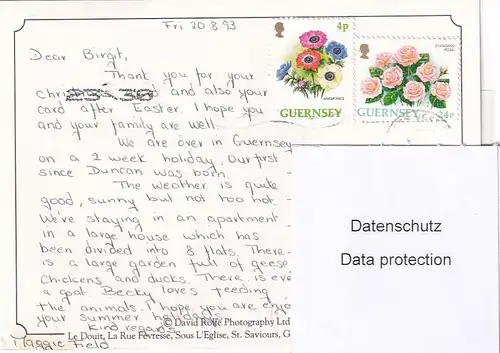 Fri 20.8.93
Dear Birgit,
Thank you for your
and also your
card after Easter. I hope you
and your family are well.
We are over in Guernsey
on a 2 week holiday. Our first
since Duncan was born.
The weather is quite
good, sunny but not too hot.
We're staying in an apartment
in a large house which has
been divided into 8 flats. There
is a large garden full of geese
chickens and ducks. There is eve
a goat. Becky loves feeding
the animals. I hope you are enjoy
your summer holidays.
Kind regards
Maggie Field
© David Rolfe Photography Ltd
Le Douit, La Rue Fevresse, Sous L'Eglise, St. Saviours, G
4p
ANEMONES
GUERNSEY
STANDARD
ROSE
GUERNSEY 24p
Datenschutz
Data protection